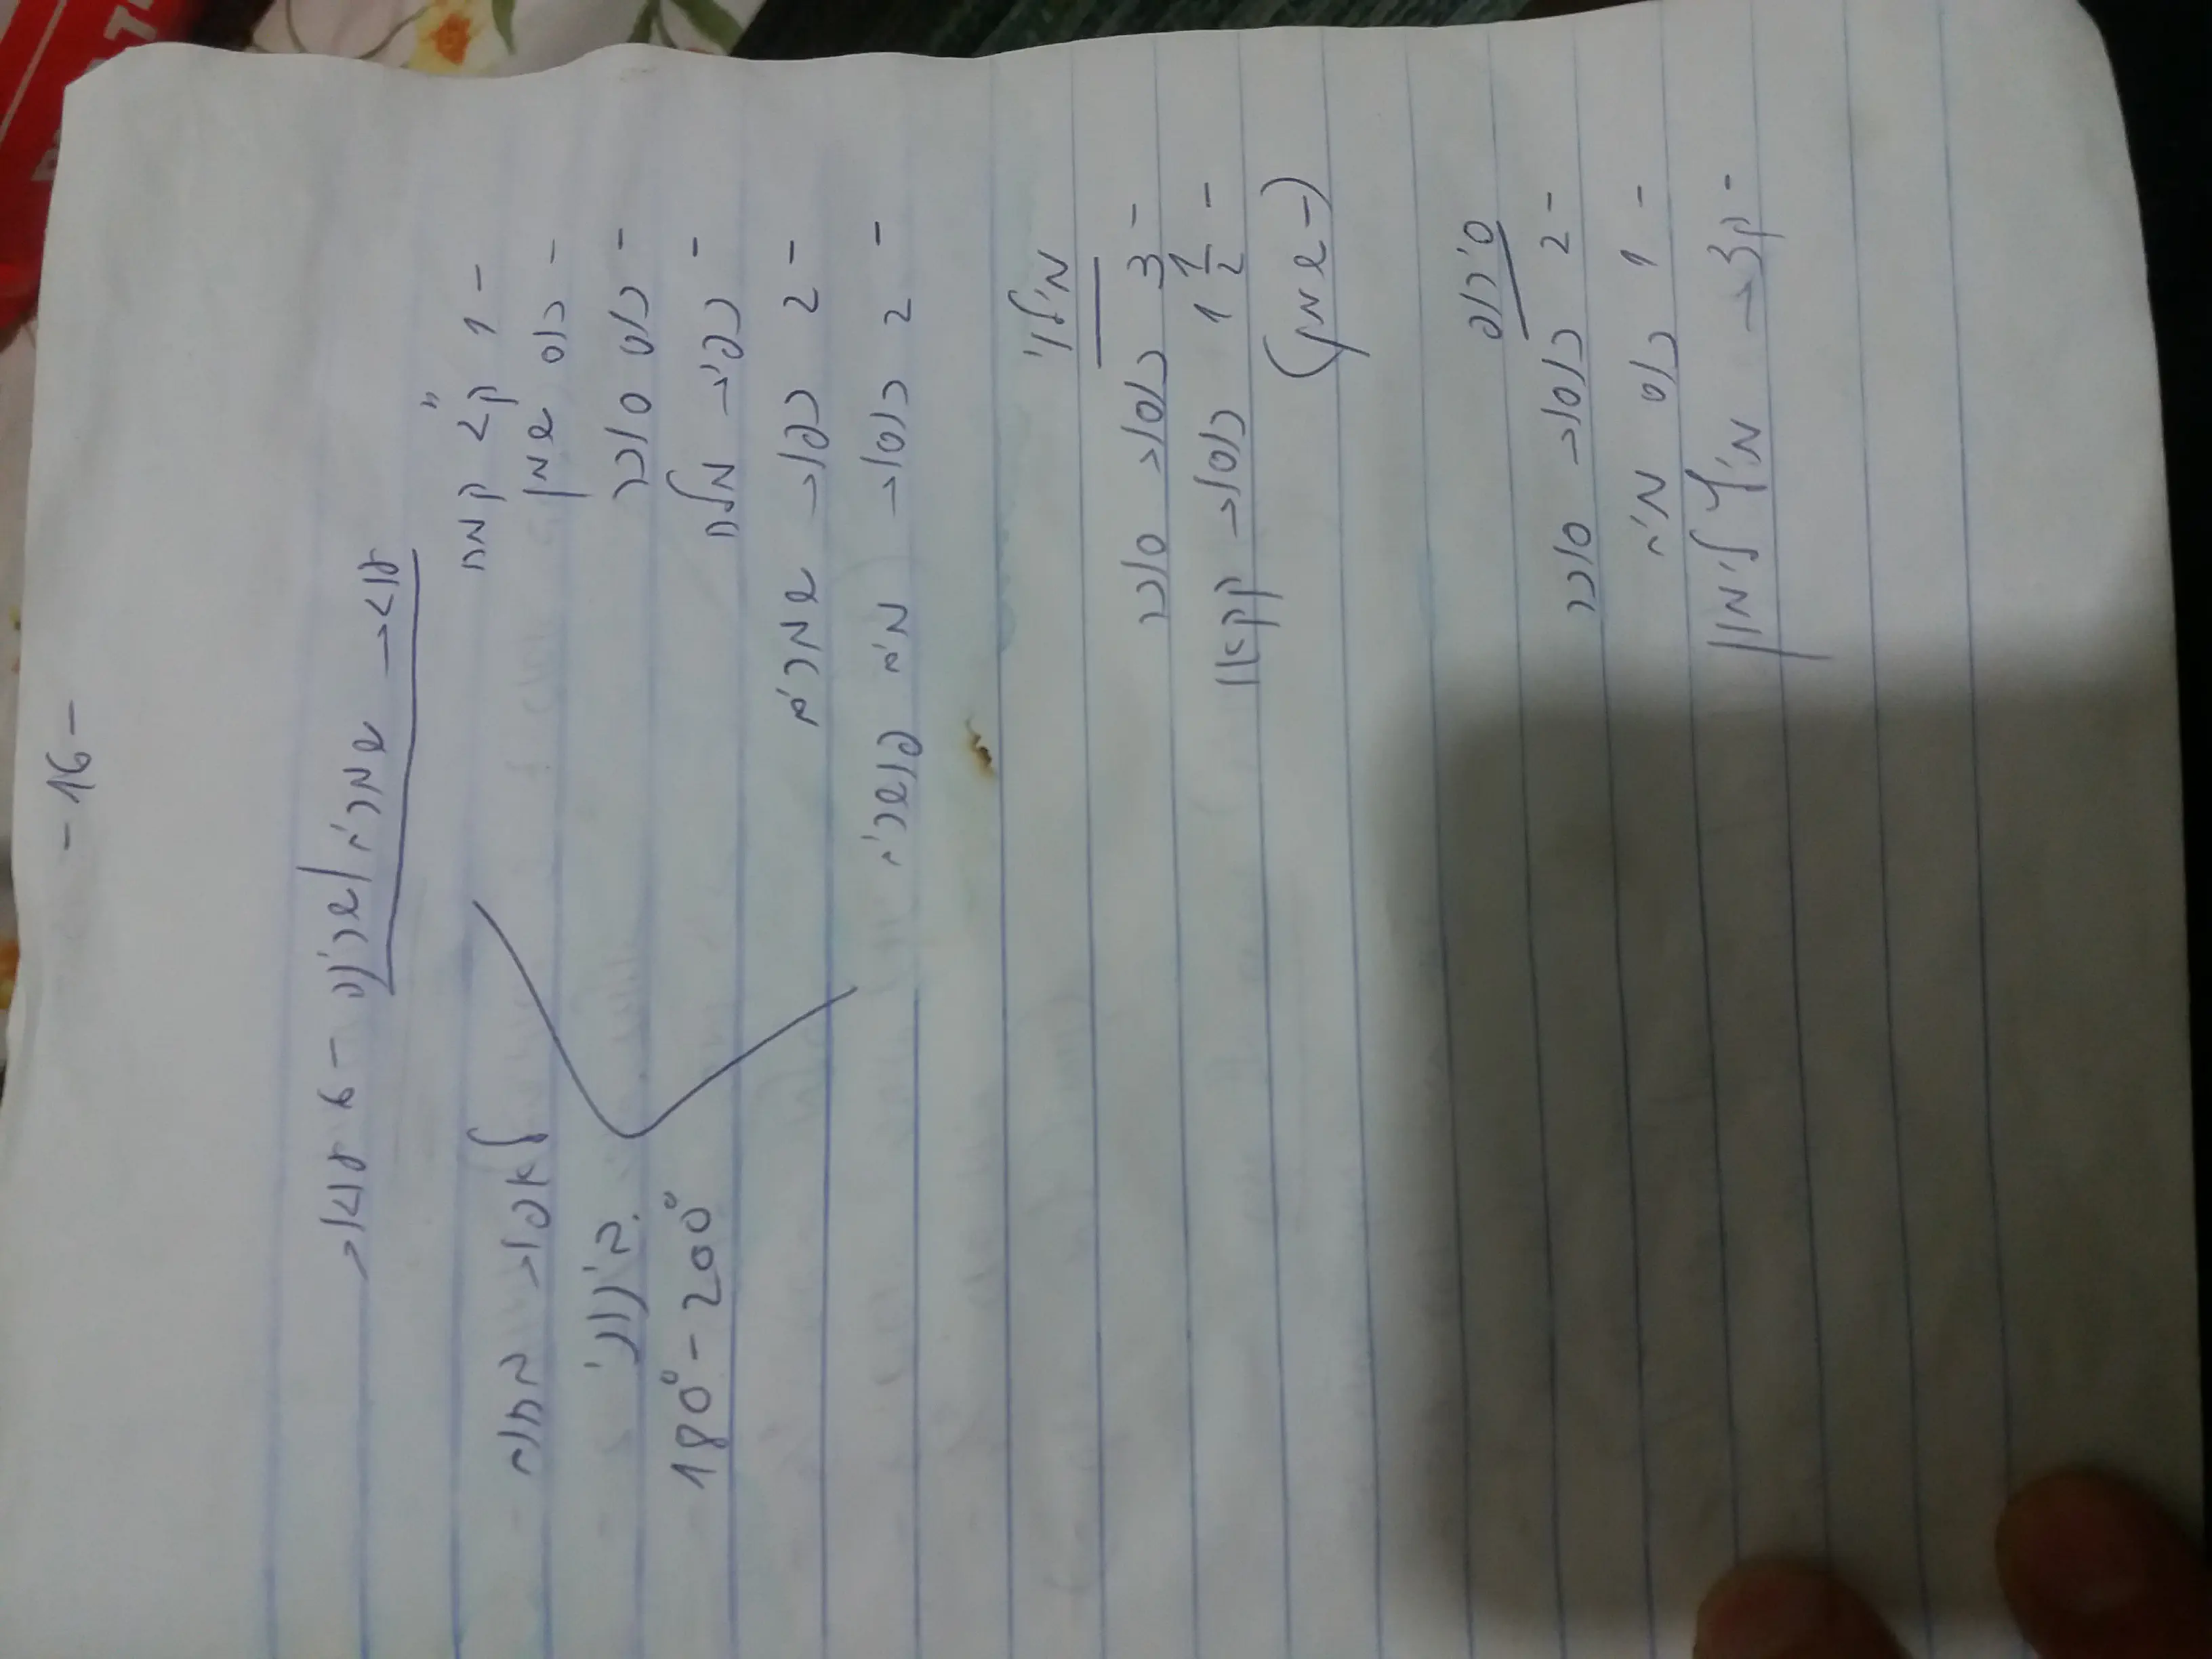 -16-
עוגת שמרים
- 1 ק"ג קמח
- כוס שמן
- כוס סוכר
- כפית מלח
- 2 כפות שמרים
- 2 כוסות מים פושרים
לאפות
180° - 200°
מילוי
- 3 כוסות סוכר
- 1 1/2 כוסות קקאו
(- שמן)
סירופ
- 2 כוסות סוכר
- 1 כוס מים
- קצת מיץ לימון